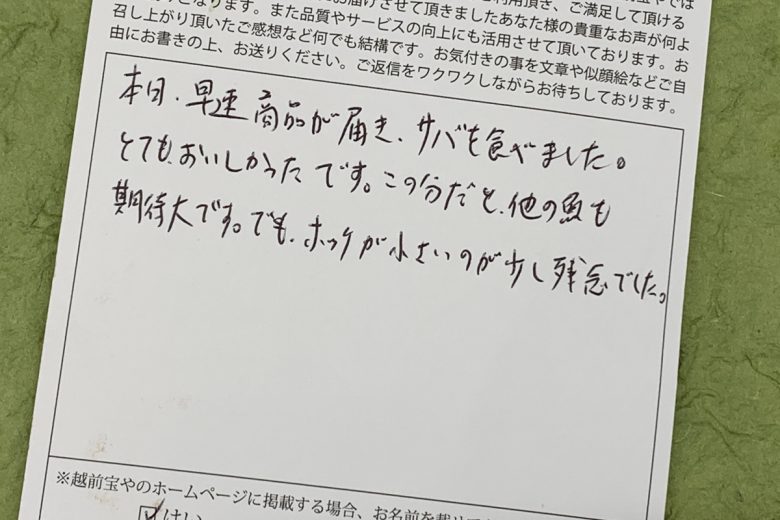 お届けさせて頂きましたあなた様の貴重なお声が何よ
となります。また品質やサービスの向上にも活用させて頂いております。お
召し上がり頂いたご感想など何でも結構です。お気付きの事を文章や似顔絵などご自
由にお書きの上、お送りください。ご返信をワクワクしながらお待ちしております。
本日、早速商品が届き、サバを食べました。
とても、おいしかったです。この分だと、他の魚も
期待大です。でも、ホッケが小さいのが少し残念でした。
※越前宝やのホームページに掲載する場合、お名前を載せて
はい